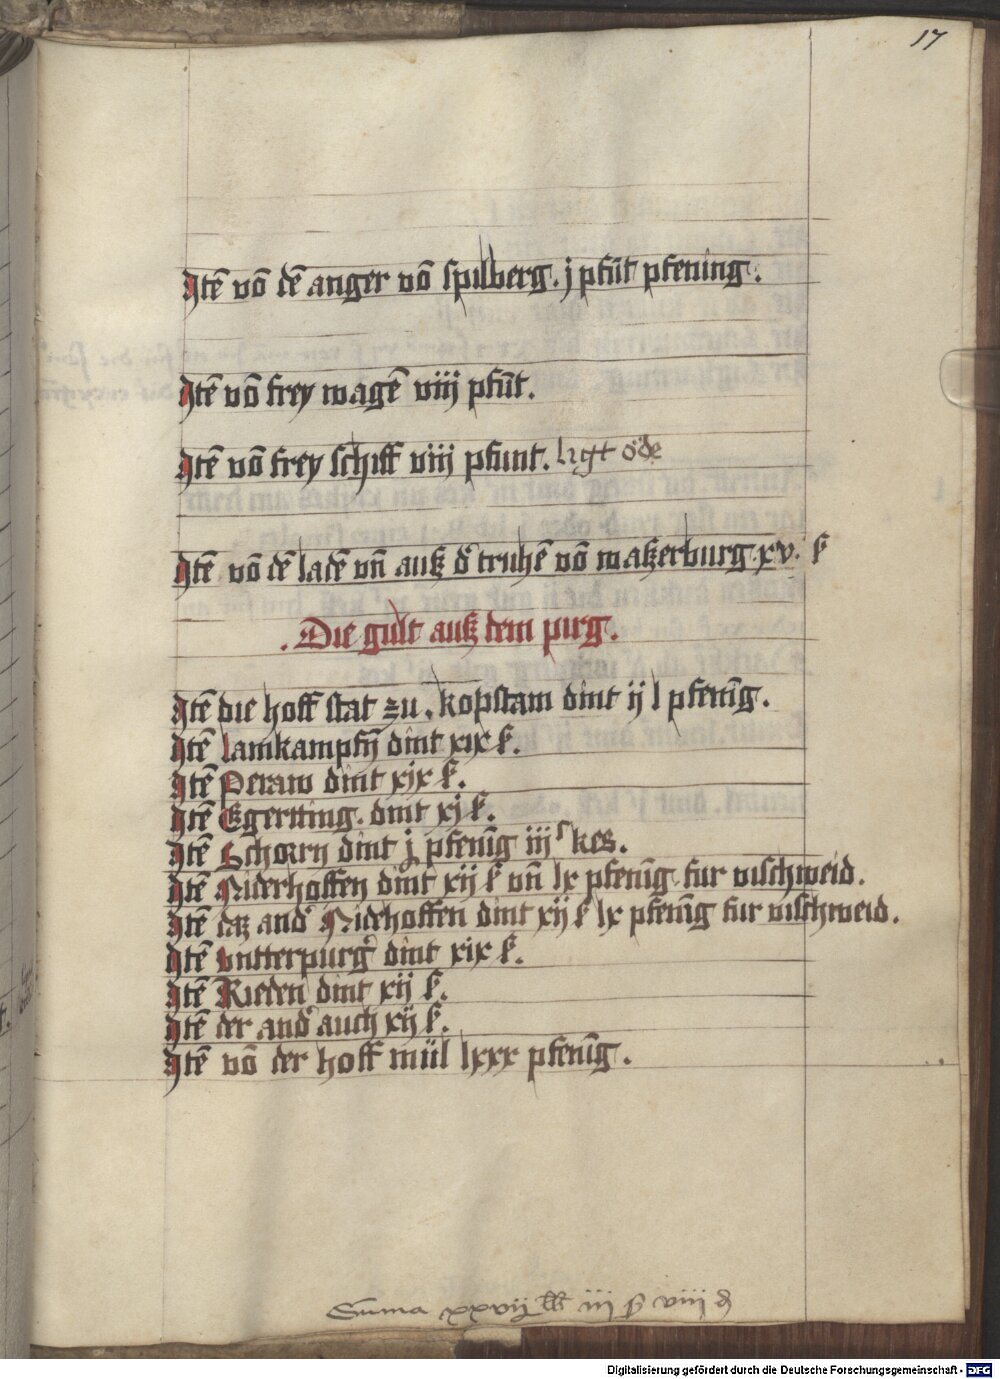 17
Itē võ dē anger võ spilberg. j pfūt pfening.
Itē võ frey wagē viij pfūt.
Itē võ frey schiff viij pfunt. ligt öde
Itē võ dē ladē vñ auß d' truhē võ waßerburg xv. ß
.Die gult auß dem pirg.
Itē die hoff stat zu kopstam dint ij l pfenīg.
Itē lamkampfñ dint xix ß.
Itē Peraw dint xix ß.
Itē Egerting. dint xj ß.
Itē Schorrn dint j pfenīg iij kes.
Itē Niderhoffen dint xij ß vñ lx pfenīg fur vischweid.
Itē daz and' Nidehoffen dint xij ß lx pfenīg fur vischweid.
Itē vntterpurg' dint xix ß.
Itē Rieden dint xij ß.
Itē der and' auch xij ß.
Itē võ der hoff mül lxxx pfenīg.
Suma xxvij lb iii ß viii d
Digitalisierung gefördert durch die Deutsche Forschungsgemeinschaft - DFG